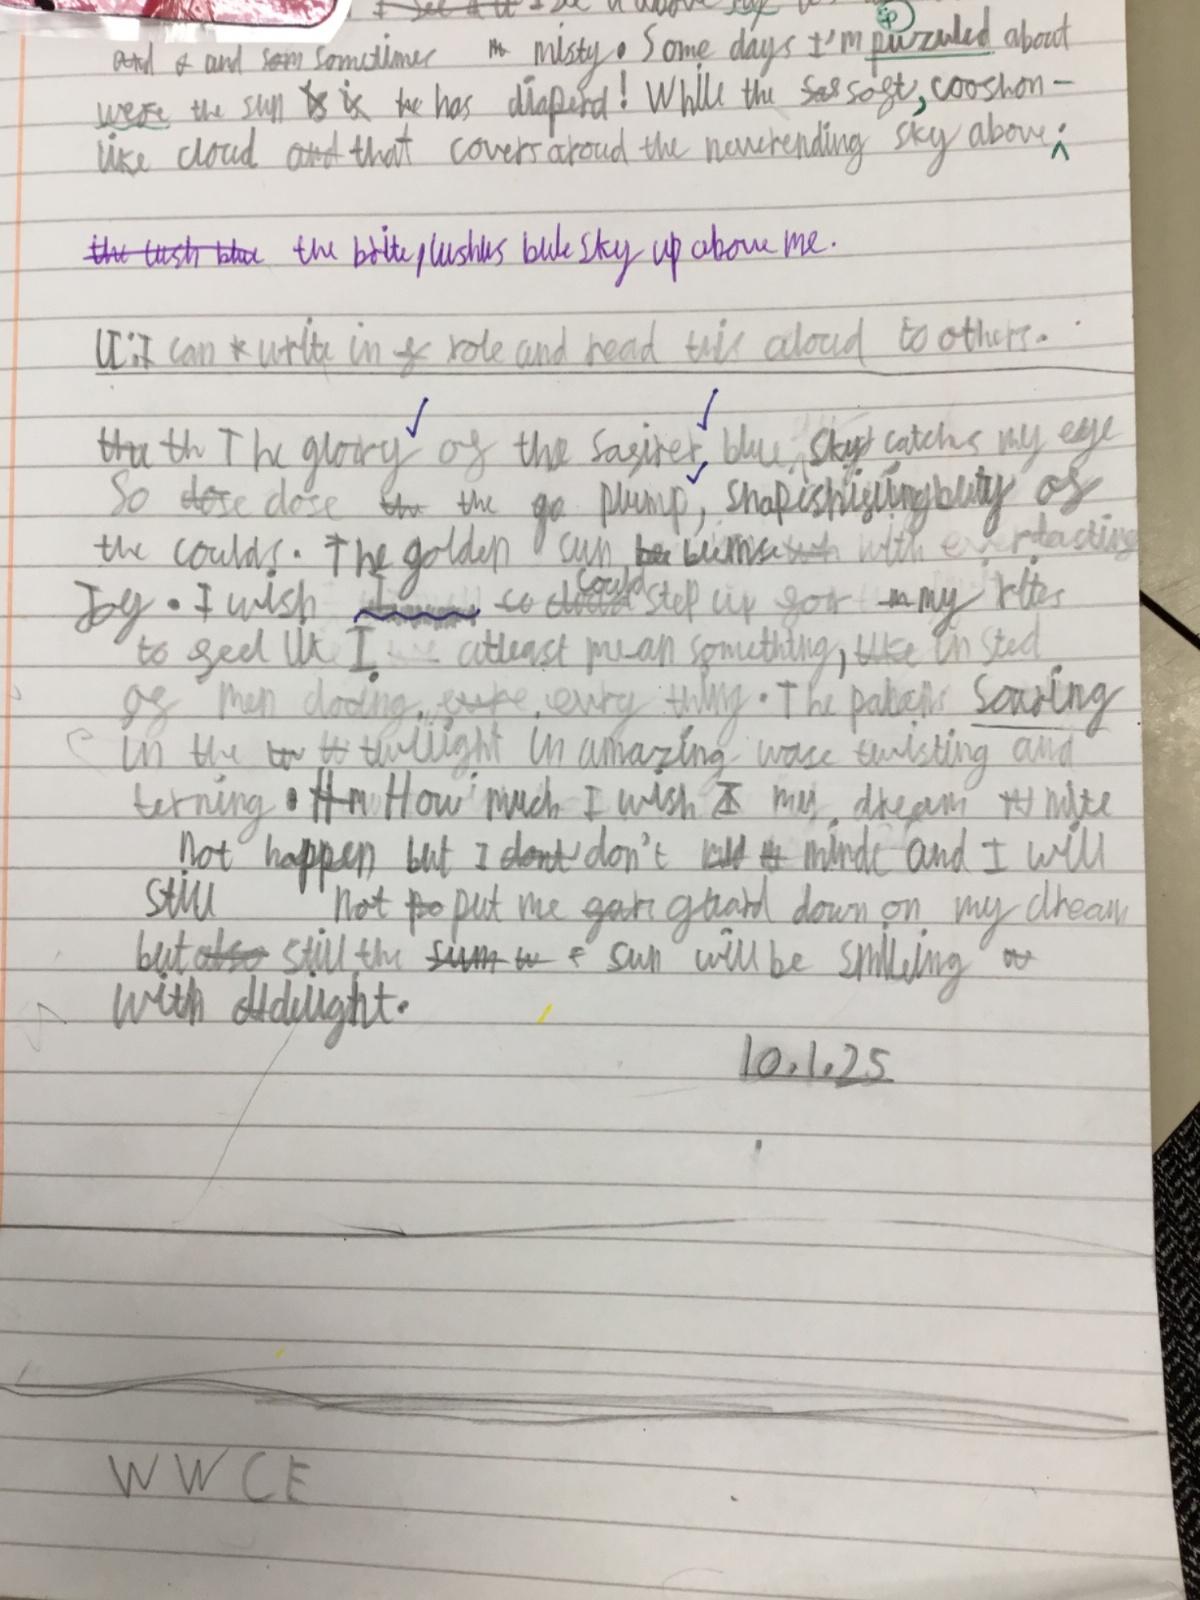 and sometimes misty. Some days I'm puzzuled about
were the sun is he has diaperd! While the sogt, cooshon-
like cloud that covers aroud the neverending sky above.
the brite, lushus bule sky up above me.
LI: I can write in role and read this aloud to others.
The glory og the sasirer, blue, sky catches my eye
So close the plump, beuty og
the coulds. The golden sun with everlasting
Joy. I wish could step up gor my rites
to geel like I atleast mean something, insted
og men cloding every thing. The pakans Soaring
in the twilight in amazing wase twisting and
terning. How much I wish my dream mite
Not happen but I don't minde and I will
still Not put me guard down on my dream
but still the sun will be smileing
with delight.
10.1.25
WWCE